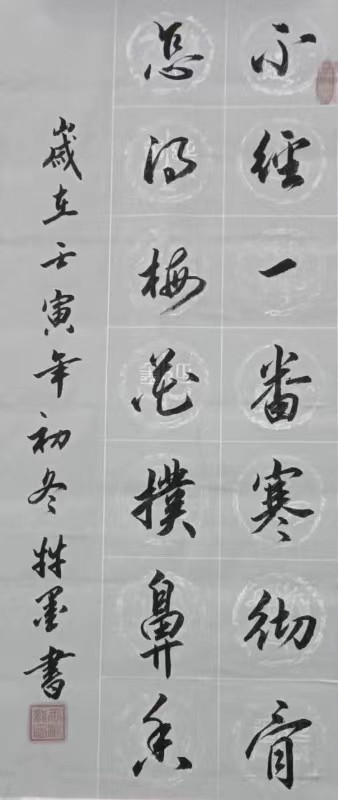 不經一番寒彻骨
怎得梅花撲鼻香
歲在壬寅年初冬 墨書